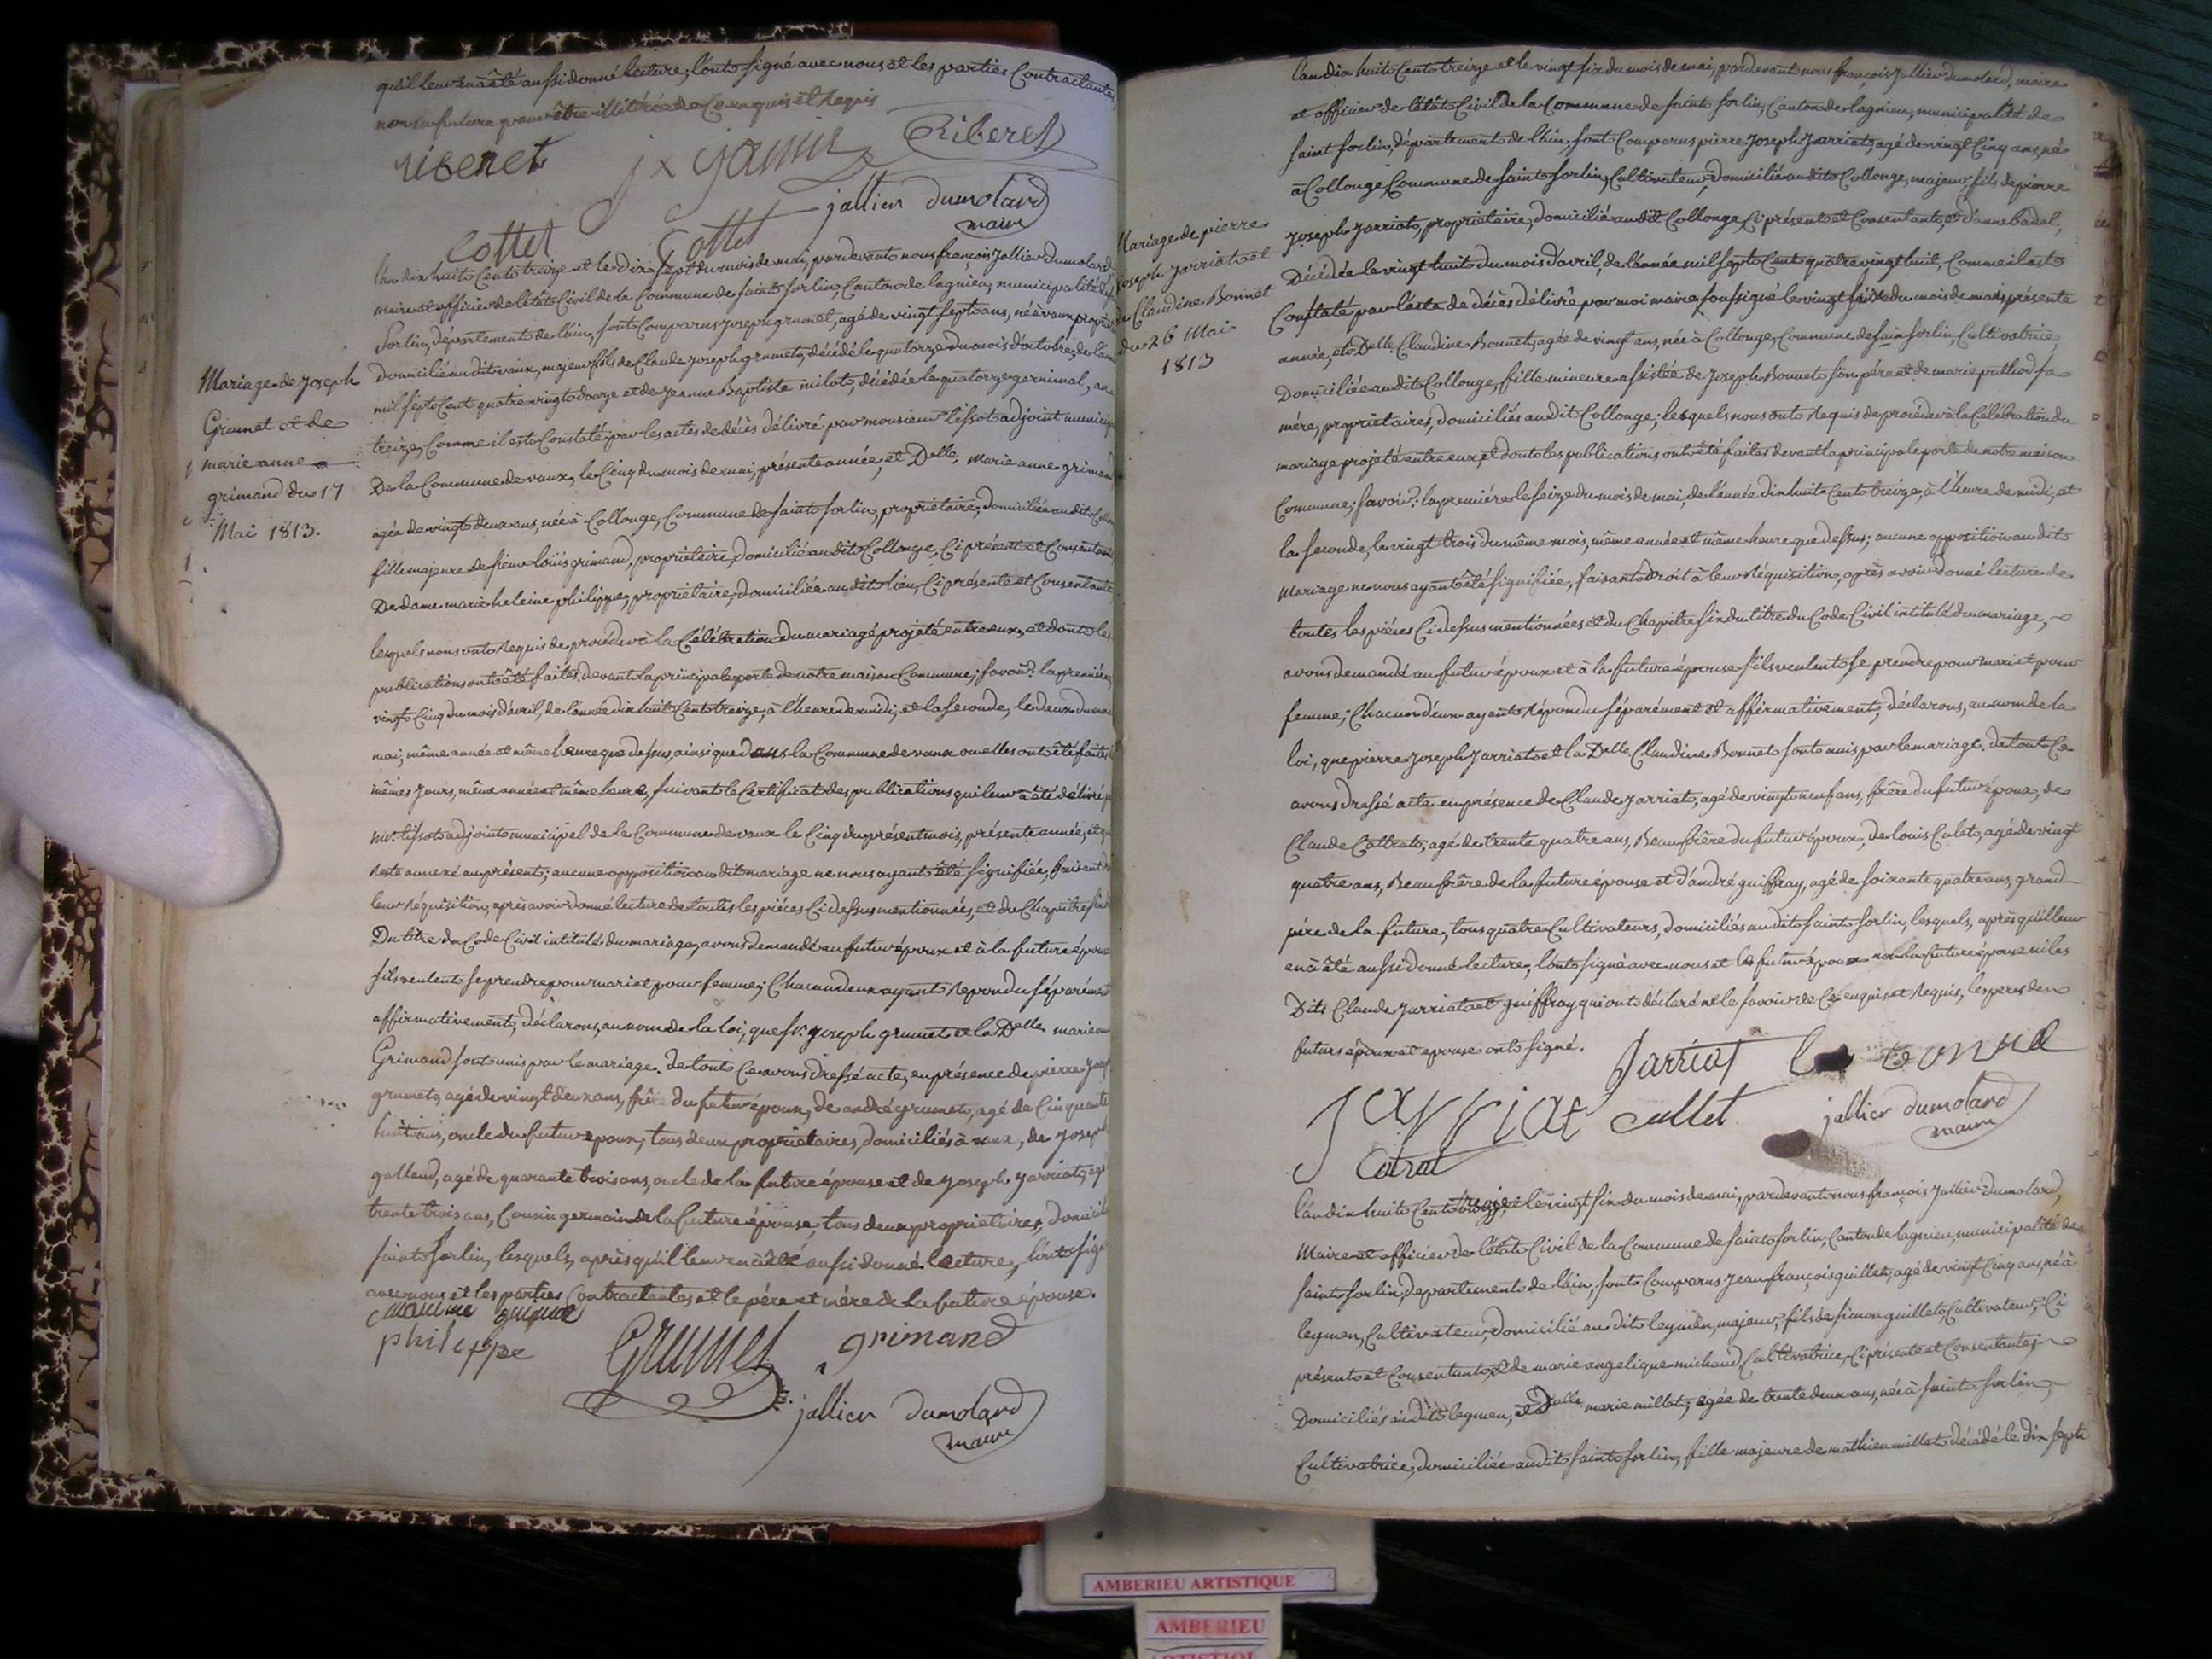 qu'il leur en a été aussi donné lecture, l'ont signé avec nous et les parties Contractantes,
non la future pour être illitérée de Ce enquis et Requis
riberet j x Janin Riberet
jallier dumolard
maire
Cottet Cottet
l'an dix huit Cent treize et le dix sept du mois de mai, pardevant nous françois Jallier Dumolard
maire et officier de l'état Civil de la Commune de saint sorlin, Canton de lagnieu, municipalité de
Sorlin, département de l'ain, sont Comparus Joseph grumet, agé de vingt sept ans, né à vaux, propriét
Mariage de Joseph
Grumet et de
marie anne
grimand du 17
Mai 1813.
domicilié au dit vaux, majeur, fils de Claude Joseph grumet, décédé le quatorze du mois d'octobre, de l'an
mil sept Cent quatre vingt douze et de Jeanne Baptiste milot, décédée le quatorze germinal, an
treize, Comme il est Constaté par les actes de décès délivré par monsieur tissot adjoint municip
De la Commune de vaux, le Cinq du mois de mai, présente année, et Delle. marie anne grimand
agée de vingt deux ans, née à Collonge, Commune de saint sorlin, propriétaire, domiciliée au dit Collo
fille majeure de sieur loüis grimand, propriétaire, domicilié au dit Collonge, Ci présent et Consentant
De dame marie heleine philippe, propriétaire, domiciliée au dit lieu, Ci présente et Consentante
lesquels nous ont Requis de procéder à la Célébration du mariage projeté entre eux, et dont les
publications ont été faites, devant la principale porte de notre maison Commune; savoir: la première
vingt Cinq du mois d'avril, de l'année dix huit Cent treize, à l'heure de midi, et la seconde, le deux du mois
mai, même année et même heure que dessus, ainsi que dans la Commune de vaux ou elles ont été faites
mêmes jours, même année et même heure, suivant le Certificat des publications qui leur a été délivré p
mr. tissot adjoint municipal de la Commune de vaux le Cinq du présent mois, présente année, et q
Reste annexé au présent; aucune opposition au dit mariage ne nous ayant été signifiée, faisant
leur Réquisition, après avoir donné lecture de toutes les pièces Ci dessus mentionnées, et du Chapitre six
Du titre du Code Civil intitulé du mariage, avons demandé au futur époux et à la future épouse
s'ils veulent se prendre pour mari et pour femme; Chacun d'eux ayant Répondu séparément
affirmativement, déclarons, au nom de la loi, que sr. Joseph grumet et la Delle. marie anne
Grimand sont unis par le mariage. De tout Ce avons dressé acte, en présence de pierre Joseph
grumet, agé de vingt deux ans, frère du futur époux, de andré grumet, agé de Cinquante
huit ans, oncle du futur époux, tous deux propriétaires, domiciliés à vaux, de Joseph
galland, agé de quarante trois ans, oncle de la future épouse et de Joseph Jarriat, agé
trente trois ans, Cousin germain de la future épouse, tous deux propriétaires, domicil
saint sorlin, lesquels, après qu'il leur en a été aussi donné lecture, l'ont sign
avec nous et les parties Contractantes et le père et mère de la future épouse.
philippe Grumet grimand
jallier dumolard
maire
l'an dix huit Cent treize et le vingt six du mois de mai, pardevant nous françois Jallier dumolard, maire
et officier de l'état Civil de la Commune de saint sorlin, Canton de lagnieu, municipalité de
saint sorlin, département de l'ain, sont Comparus pierre Joseph Jarriat, agé de vingt Cinq ans, né
à Collonge, Commune de saint sorlin, Cultivateur, domicilié au dit Collonge, majeur, fils de pierre
Mariage de pierre
joseph Jarriat et
de Claudine Bonnet
du 26 Mai
1813
Joseph Jarriat, propriétaire, domicilié au dit Collonge, Ci présent et Consentant, et d'anne badal,
Décédée le vingt huit du mois d'avril, de l'année mil sept Cent quatre vingt huit, Comme il est
Constaté par l'acte de décès délivré par moi maire soussigné le vingt six du mois de mai présente
année, et Delle. Claudine Bonnet, agée de vingt ans, née à Collonge, Commune de saint sorlin, Cultivatrice
Domiciliée au dit Collonge, fille mineure assistée de Joseph Bonnet son père et de marie puthod sa
mère, propriétaires, domiciliés au dit Collonge; lesquels nous ont Requis de procéder à la Célébration du
mariage projeté entre eux, et dont les publications ont été faites devant la principale porte de notre maison
Commune; savoir: la première le seize du mois de mai, de l'année dix huit Cent treize, à l'heure de midi, et
la seconde, le vingt trois du même mois, même année et même heure que dessus; aucune opposition au dit
Mariage ne nous ayant été signifiée, faisant droit à leur Réquisition, après avoir donné lecture de
toutes les pièces Ci dessus mentionnées et du Chapitre six du titre du Code Civil intitulé du mariage,
avons demandé au futur époux et à la future épouse s'ils veulent se prendre pour mari et pour
femme; Chacun d'eux ayant Répondu séparément et affirmativement, déclarons, au nom de la
loi, que pierre Joseph Jarriat et la Delle. Claudine Bonnet sont unis par le mariage. De tout Ce
avons dressé acte en présence de Claude Jarriat, agé de vingt neuf ans, frère du futur époux, de
Claude Cattrat, agé de trente quatre ans, Beau frère du futur époux, de louis Culet, agé de vingt
quatre ans, Beau frère de la future épouse et d'andré guiffray, agé de soixante quatre ans, grand
père de la future, tous quatre Cultivateurs, domiciliés au dit saint sorlin, lesquels, après qu'il leur
en a été aussi donné lecture, l'ont signé avec nous et le futur époux non la future épouse ni les
Dits Claude Jarriat et guiffray qui ont déclaré ne le savoir de Ce enquis et Requis, les peres des
futurs époux et epouse ont signé.
Jarriat bonnet
Jarriat Cullet jallier dumolard
maire
Catrat
l'an dix huit Cent treize et le vingt six du mois de mai, pardevant nous françois Jallier Dumolard,
Maire et officier de l'état Civil de la Commune de saint sorlin, Canton de lagnieu, municipalité de
saint sorlin, département de l'ain, sont Comparus Jean françois guillet, agé de vingt Cinq ans, né à
leymen, Cultivateur, domicilié au dit leymen, majeur, fils de simon guillet, Cultivateur, Ci
présent et Consentant, et de marie angelique michaud, Cultivatrice, Ci présente et Consentante,
Domiciliés au dit leymen, et Delle. marie millet, agée de trente deux ans, née à saint sorlin,
Cultivatrice, domiciliée au dit saint sorlin, fille majeure de mathieu millet décédé le dix sept
AMBERIEU ARTISTIQUE
AMBERIEU
ARTISTIQUE